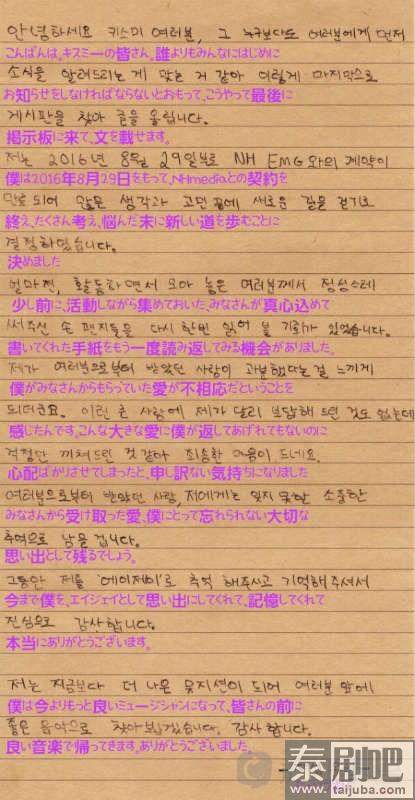 안녕하세요 키스미 여러분, 그 누구보다도 여러분에게 먼저
こんばんは。キスミーの皆さん。誰よりもみんなにはじめに
소식을 알려드리는 게 맞는 거 같아 이렇게 마지막으로
お知らせをしなければならないとおもって、こうやって最後に
게시판을 찾아 글을 올립니다.
掲示板に来て、文を載せます。
저는 2016년 8월 29일부로 NH EMG와의 계약이
僕は2016年8月29日をもって、NHmediaとの契約を
만료 되어 많은 생각과 고민 끝에 새로운 길을 걷기로
終え、たくさん考え、悩んだ末に新しい道を歩むことに
결정하였습니다.
決めました
얼마전, 활동하면서 모아 놓은 여러분께서 정성스레
少し前に、活動しながら集めておいた、みなさんが真心込めて
써주신 손 편지들을 다시 한번 읽어 볼 기회가 있었습니다.
書いてくれた手紙をもう一度読み返してみる機会がありました。
제가 여러분으로부터 받았던 사랑이 과분했다는걸 느끼게
僕がみなさんからもらっていた愛が不相応だということを
되더군요. 이런 큰 사랑에 제가 달리 보답해 드린 것도 없는데
感じたんです。こんな大きな愛に僕が返してあげれてもないのに
걱정만 끼쳐드린 것 같아 죄송한 마음이 드네요.
心配ばかりさせてしまったと、申し訳ない気持ちになりました
여러분으로부터 받았던 사랑, 저에게는 잊지 못할 소중한
みなさんから受け取った愛、僕にとって忘れられない大切な
추억으로 남을 겁니다.
思い出として残るでしょう。
그동안 저를 '에이제이'로 추억 해주시고 기억해주셔서
今まで僕を、エイジェイとして思い出にしてくれて、記憶してくれて
진심으로 감사합니다.
本当にありがとうございます。
저는 지금보다 더 나은 뮤지션이 되어 여러분 앞에
僕は今よりもっと良いミュージシャンになって、皆さんの前に
좋은 음악으로 찾아뵙겠습니다. 감사합니다.
良い音楽で帰ってきます。ありがとうございました。
泰剧吧
www.taijuba.com